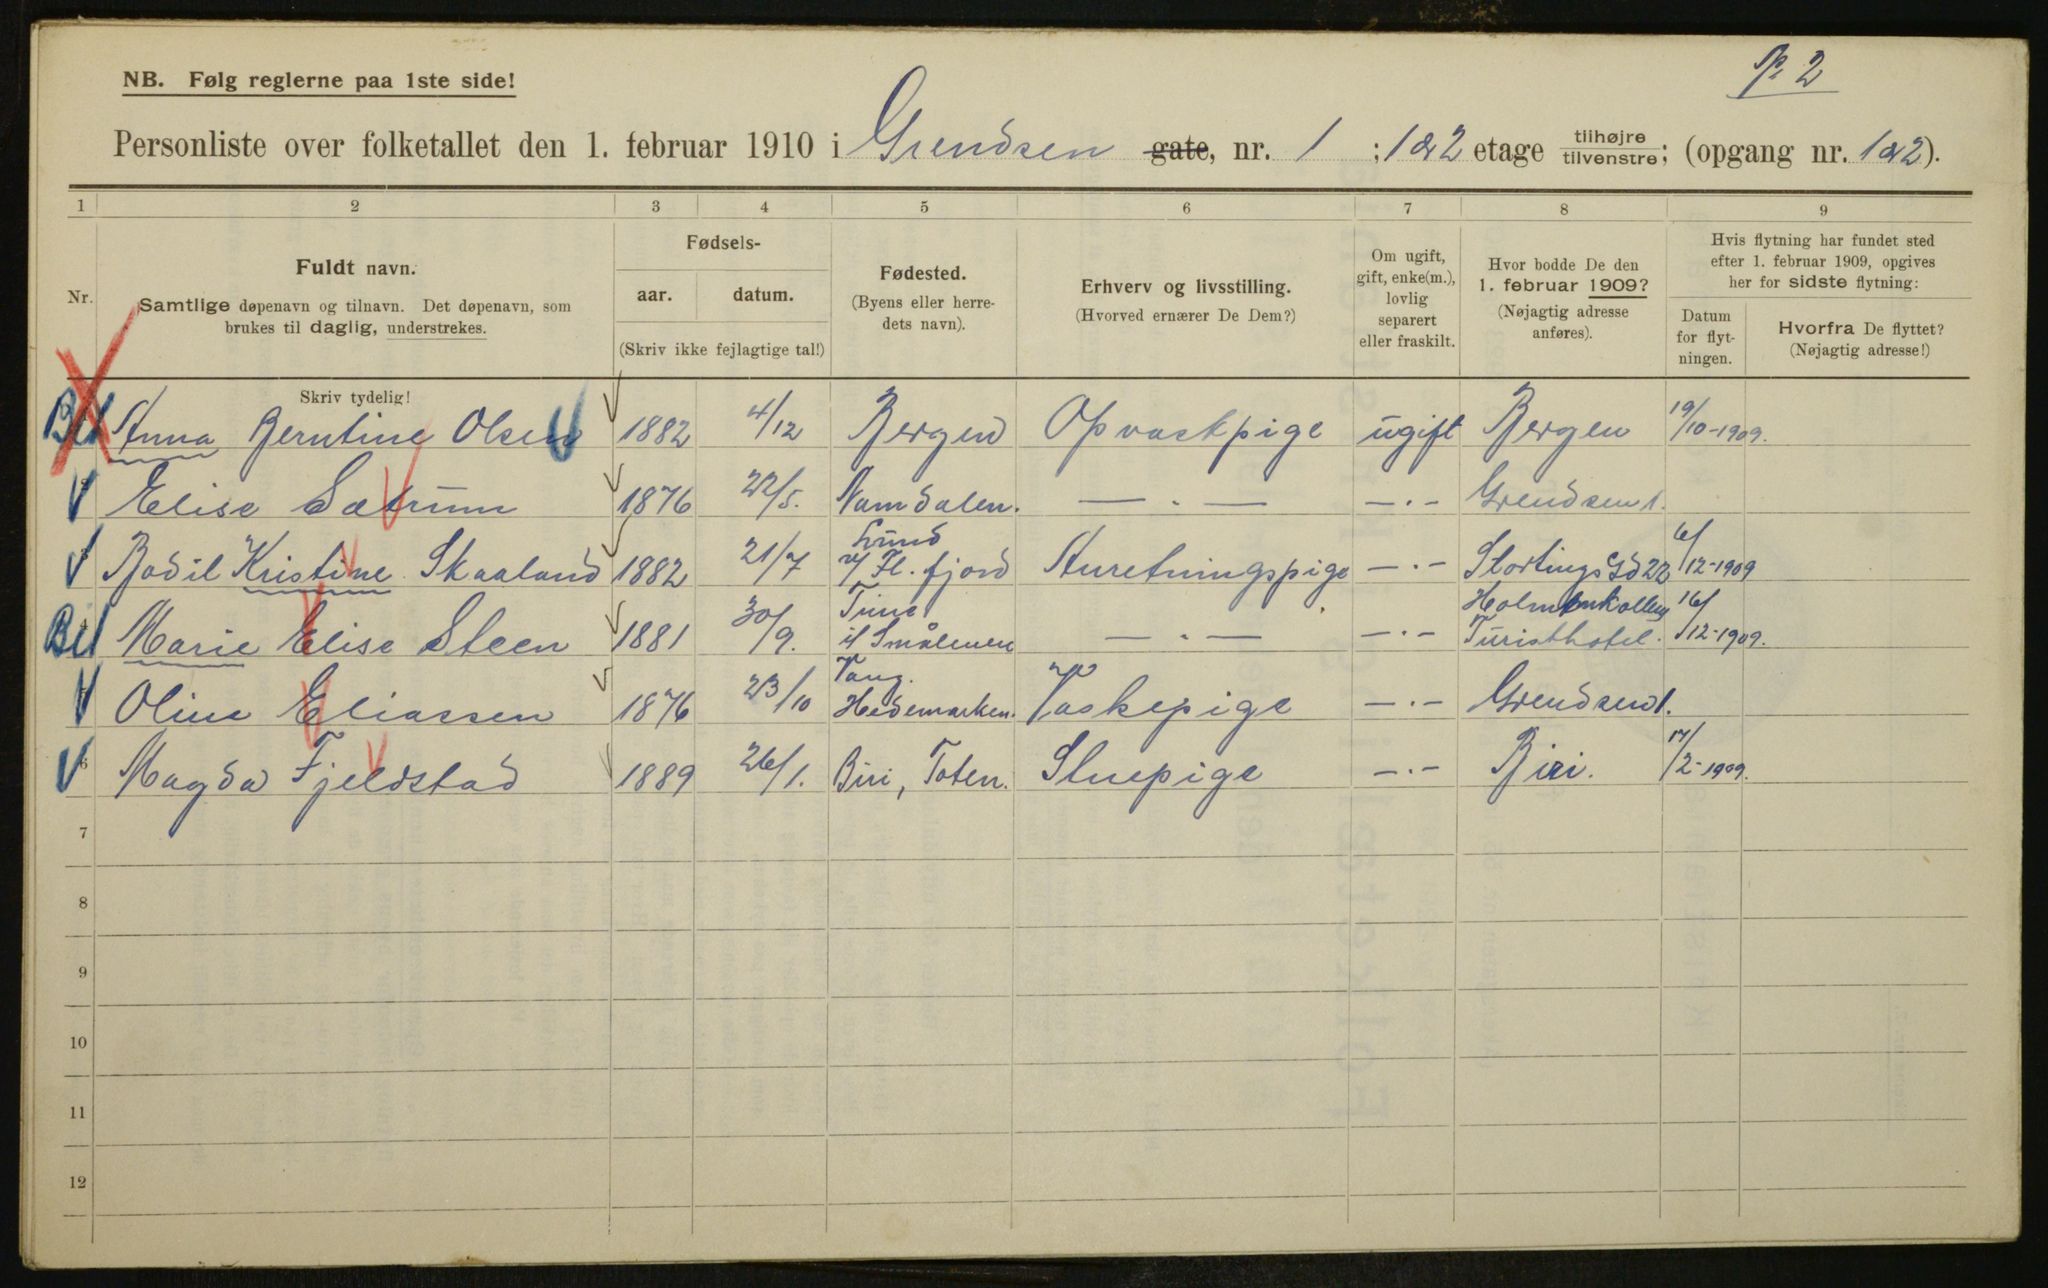 P. 2
NB. Følg reglerne paa 1ste side!
Personliste over folketallet den 1. februar 1910 i Grendsen gate, nr. 1 ; 1 & 2 etage tilhøjre tilvenstre; (opgang nr. 1 & 2).
1 2 3 4 5 6 7 8 9
Nr.
Fuldt navn.
Samtlige døpenavn og tilnavn. Det døpenavn, som
brukes til daglig, understrekes.
Skriv tydelig!
Fødsels-
aar. datum.
(Skriv ikke fejlagtige tal!)
Fødested.
(Byens eller herre-
dets navn).
Erhverv og livsstilling.
(Hvorved ernærer De Dem?)
Om ugift,
gift, enke(m.),
lovlig
separert
eller fraskilt.
Hvor bodde De den
1. februar 1909?
(Nøjagtig adresse
anføres).
Hvis flytning har fundet sted
efter 1. februar 1909, opgives
her for sidste flytning:
Datum
for flyt-
ningen.
Hvorfra De flyttet?
(Nøjagtig adresse!)
Anna Berntine Olsen 1882 4/12 Bergen Opvaskpige ugift Bergen 19/10-1909.
Elise Sætrum 1876 22/5. Namdalen. — " — — " — Grendsen 1.
Bodil Kristine Skaaland 1882 21/7 Lund v/ Fl. fjord Anretningspige — " — Stortings Gd 22 6/12-1909
4 Marie Elise Steen 1881 30/9. Tune i Smålenene — " — — " — Holmenkollens Turisthotel. 16/12-1909.
5 Oline Eliassen 1876 23/10 Vang. Hedemarken. Vaskepige — " — Grendsen 1.
6 Magda Fjeldstad 1889 26/1. Biri, Toten. Stuepige — " — Biri. 17/2-1909.
7
8
9
10
11
12